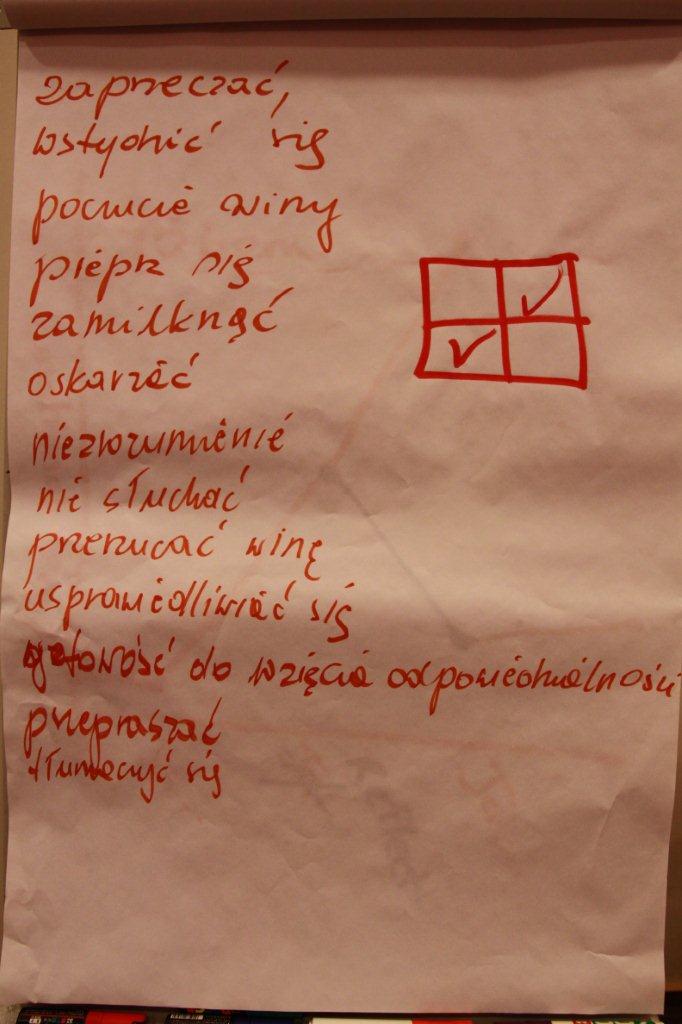 zaprzeczać,
wstydzić się
poczucie winy
pieprz się
zamilknąć
oskarżać
niezrozumienie
nie słuchać
przerzucać winę
usprawiedliwiać się
gotowość do wzięcia odpowiedzialności
przepraszać
tłumaczyć się